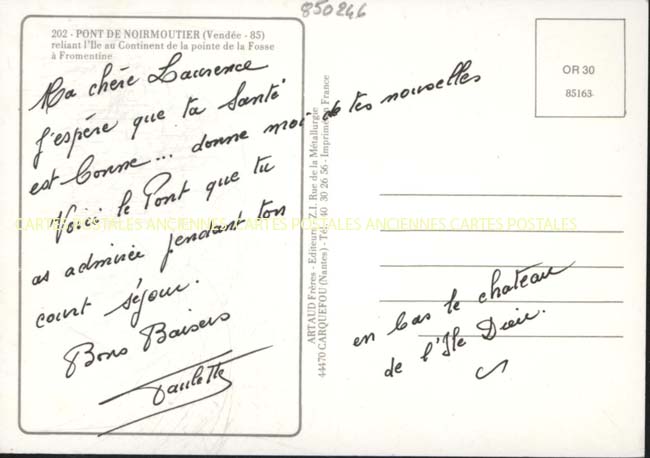 850246
202 - PONT DE NOIRMOUTIER (Vendée - 85)
reliant l'Ile au Continent de la pointe de la Fosse
à Fromentine
Ma chère Laurence
J'espère que ta Santé
est bonne... donne moi de tes nouvelles
Voici le Pont que tu
as admirée pendant ton
court séjour.
Bons Baisers
Paulette
CARTES POSTALES ANCIENNES CARTES POSTALES ANCIENNES CARTES POSTALES
ARTAUD Frères - Editeurs - Z.I. Rue de la Métallurgie
44470 CARQUEFOU (Nantes) - Tél. 40 30 26 56 - Imprimé en France
OR 30
85163
en bas le chateau
de l'Ile Dieu.